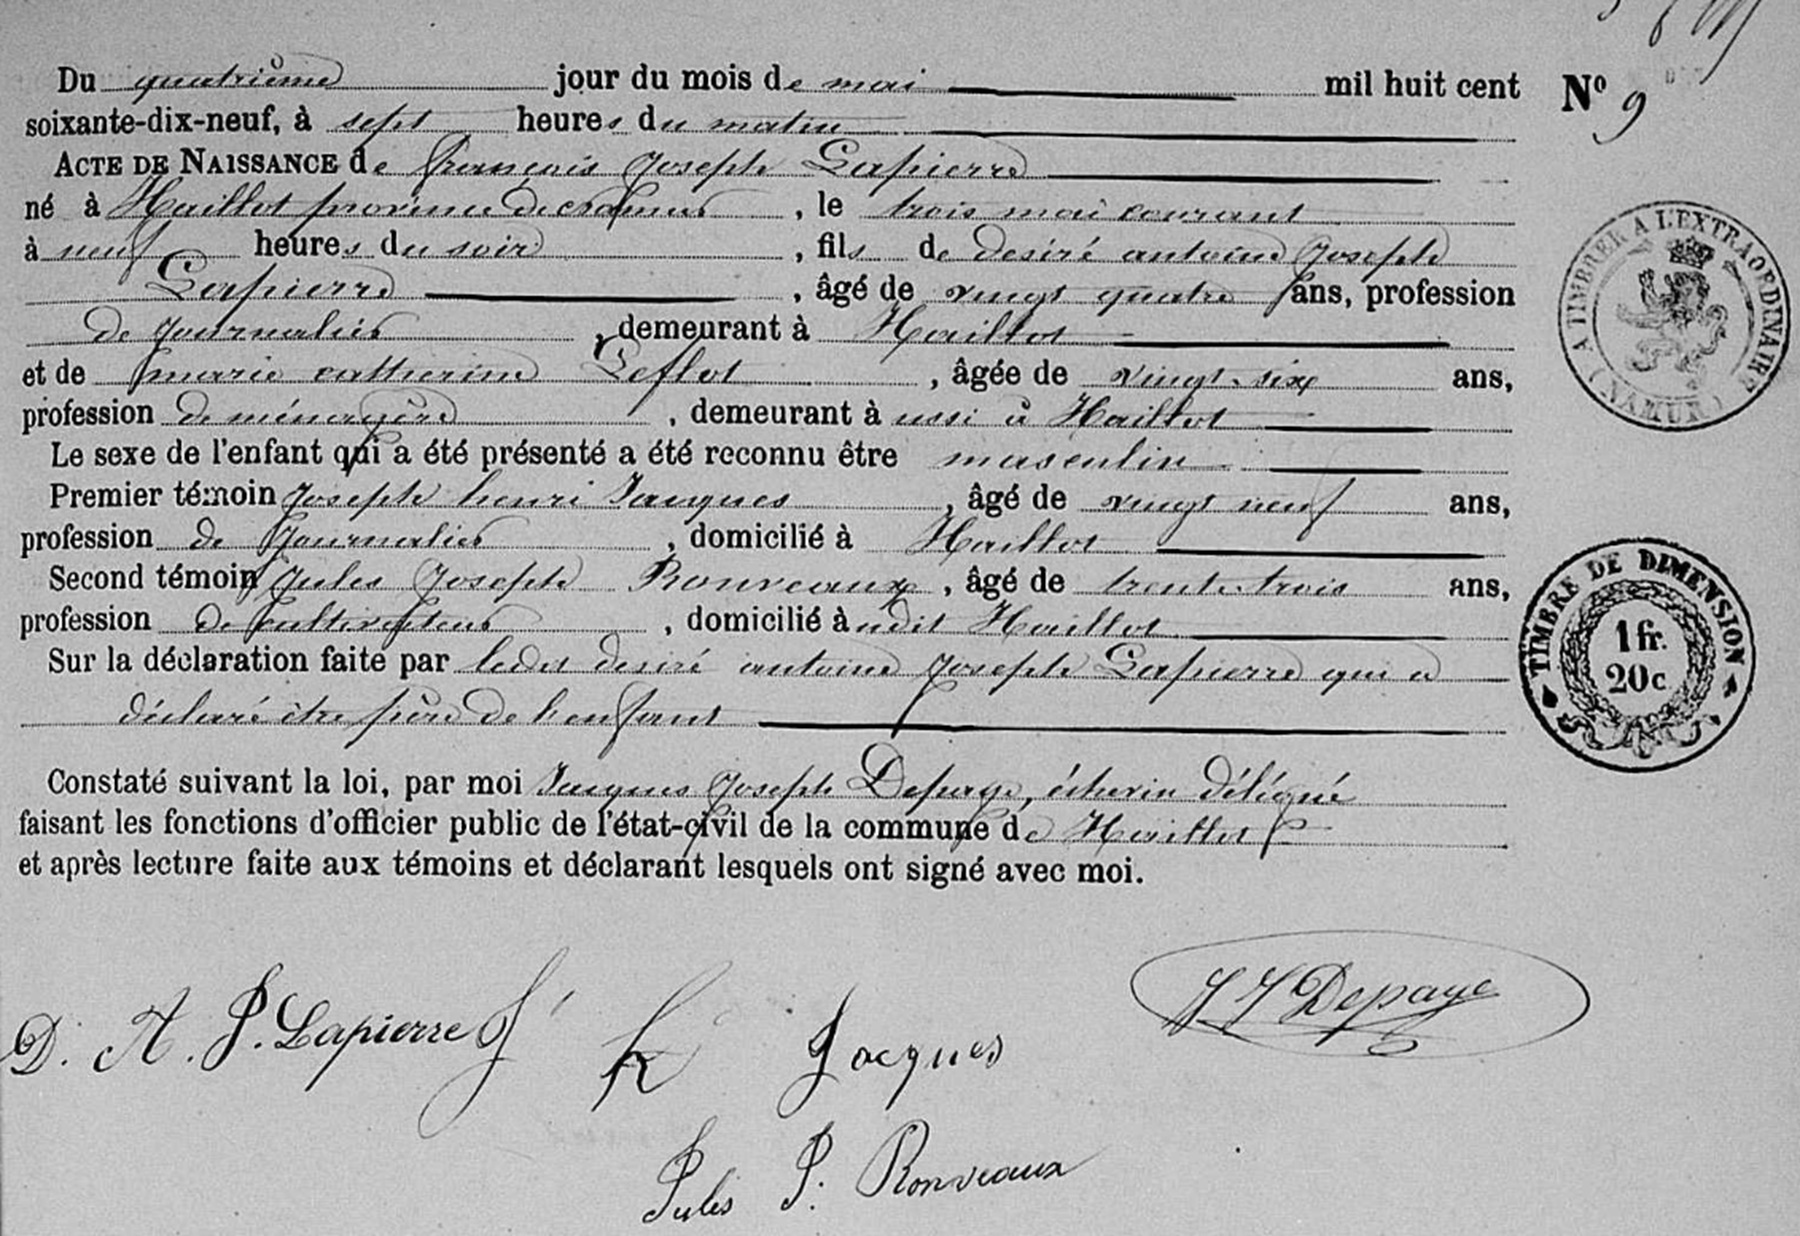 Du quatrième jour du mois de mai mil huit cent
soixante-dix-neuf, à sept heures du matin
ACTE DE NAISSANCE de françois Joseph Lapierre
né à Haillot province de Namur, le trois mai courant
à neuf heures du soir, fils de desiré antoine Joseph
Lapierre, âgé de vingt quatre ans, profession
de Journalier, demeurant à Haillot
et de marie catherine Leflot, âgée de vingt-six ans,
profession de ménagère, demeurant à ussi à Haillot
Le sexe de l'enfant qui a été présenté a été reconnu être masculin
Premier témoin Joseph henri Jacques, âgé de vingt neuf ans,
profession de Journalier, domicilié à Haillot
Second témoin Jules Joseph Ronveaux, âgé de trente-trois ans,
profession de cultivateur, domicilié à udit Haillot
Sur la déclaration faite par ledit desiré antoine Joseph Lapierre qui a
déclaré être père de l'enfant
Constaté suivant la loi, par moi Jacques Joseph Depaye, échevin délégué
faisant les fonctions d'officier public de l'état-civil de la commune de Haillot
et après lecture faite aux témoins et déclarant lesquels ont signé avec moi.
D. A. J. Lapierre J h Jacques
JJ Depaye
Jules J. Ronveaux
No 9
A TIMBRER A L'EXTRAORDINAIRE
(NAMUR)
TIMBRE DE DIMENSION
1 fr.
20c